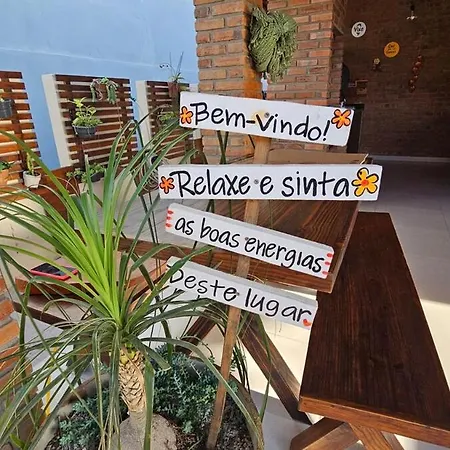 Bem-Vindo!
Relaxe e sinta
as boas energias
Deste lugar